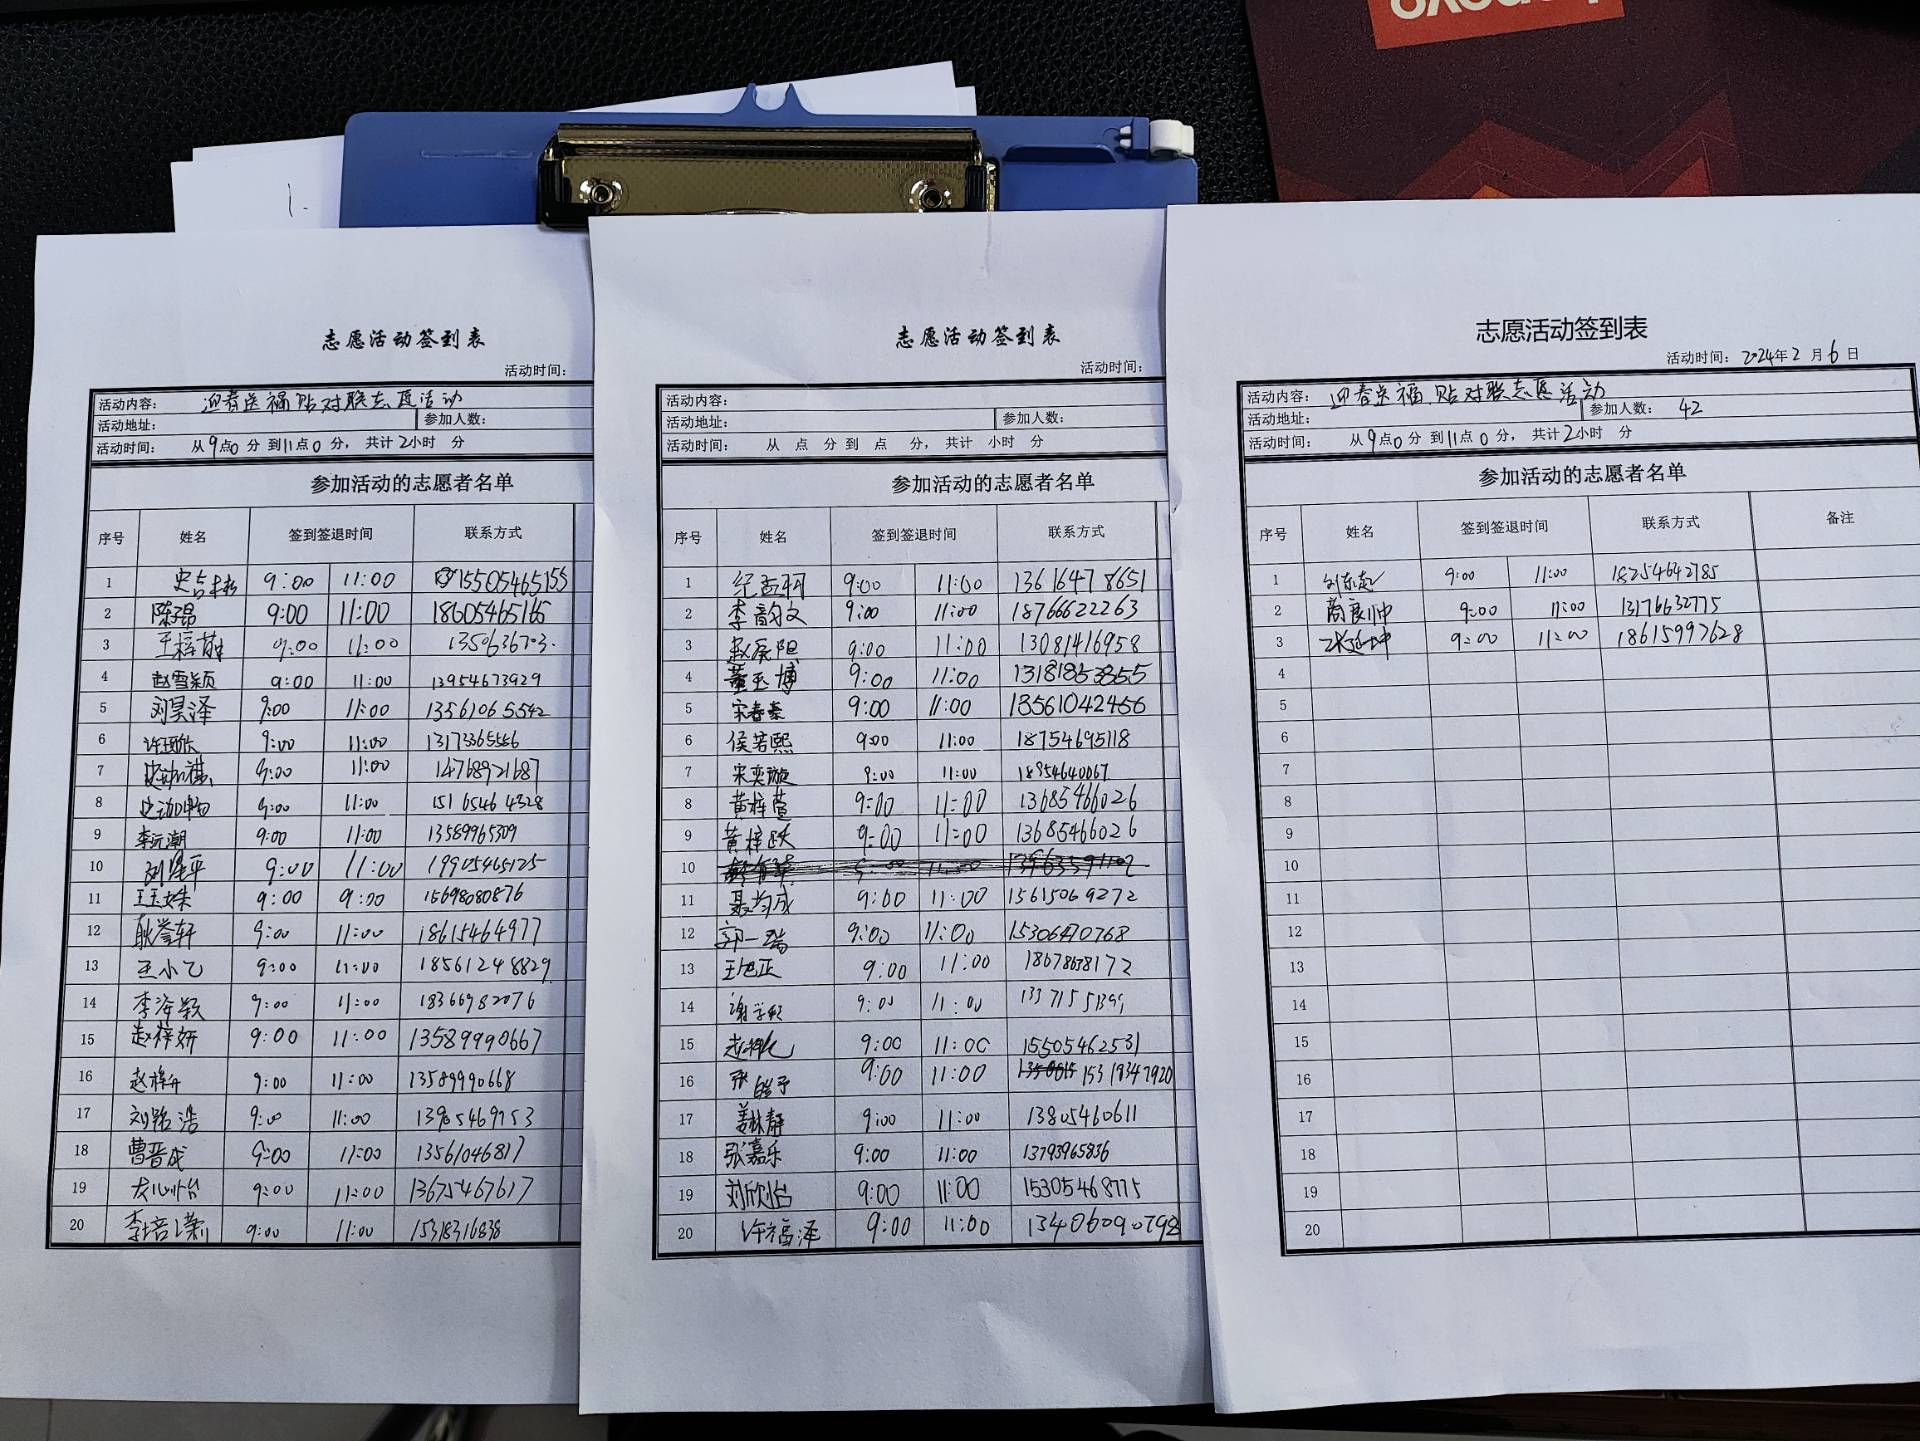 1.
志愿活动签到表
活动时间:
活动内容: 迎春送福贴对联志愿活动
活动地址: 参加人数:
活动时间: 从9点0分 到11点0分, 共计2小时 分
参加活动的志愿者名单
序号 姓名 签到签退时间 联系方式
1 9:00 11:00 15505465155
2 9:00 11:00 18605465165
3 9:00 11:00
4 赵雪颖 9:00 11:00 13954673929
5 刘昊泽 9:00 11:00 13561065542
6 9:00 11:00 13173365556
7 9:00 11:00 14768921687
8 9:00 11:00 15165464328
9 李沅潮 9:00 11:00 13589965309
10 9:00 11:00 19905465125
11 9:00 9:00 15698080876
12 耿誉轩 9:00 11:00 18615464977
13 王小乙 9:00 11:00 18561248829
14 李泽颖 9:00 11:00 18366982076
15 赵梓妍 9:00 11:00 13589990667
16 赵梓丹 9:00 11:00 13589990668
17 刘铭浩 9:00 11:00 13905469753
18 曹晋成 9:00 11:00 13561046817
19 9:00 11:00 13675467617
20 9:00 11:00 15318316838
志愿活动签到表
活动时间:
活动内容:
活动地址: 参加人数:
活动时间: 从 点 分 到 点 分, 共计 小时 分
参加活动的志愿者名单
序号 姓名 签到签退时间 联系方式
1 纪孟珂 9:00 11:00 13616478651
2 李韵文 9:00 11:00 18766622263
3 赵辰阳 9:00 11:00 13081416958
4 董玉博 9:00 11:00 13181853855
5 宋春秦 9:00 11:00 13561042456
6 侯若熙 9:00 11:00 18754695118
7 宋奕璇 9:00 11:00 18954640067
8 黄梓萱 9:00 11:00 13685466026
9 黄梓跃 9:00 11:00 13685466026
10
11 聂均成 9:00 11:00 15615069272
12 郭一瑞 9:00 11:00 15306470768
13 9:00 11:00 18678638172
14 9:00 11:00
15 9:00 11:00 15505462531
16 9:00 11:00 15319347920
17 姜林静 9:00 11:00 13805460611
18 张嘉乐 9:00 11:00 13793965836
19 刘欣怡 9:00 11:00 15305468775
20 许福泽 9:00 11:00 13406090798
志愿活动签到表
活动时间: 2024年2月6日
活动内容: 迎春送福.贴对联志愿活动
活动地址: 参加人数: 42
活动时间: 从9点0分 到11点0分, 共计2小时 分
参加活动的志愿者名单
序号 姓名 签到签退时间 联系方式 备注
1 9:00 11:00 18254642785
2 商良帅 9:00 11:00 13176632775
3 张延坤 9:00 11:00 18615997628
4
5
6
7
8
9
10
11
12
13
14
15
16
17
18
19
20